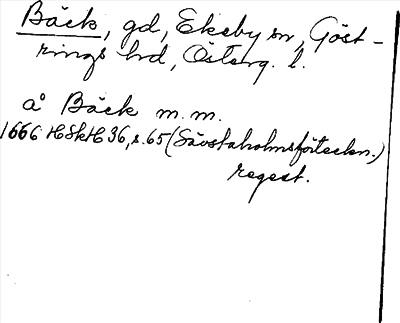 Bäck, gd, Ekeby sn, Göst-
rings hd, Österg. l.
å Bäck m. m.
1666 HSkH 36, s. 65 (Sävstaholmsförteckn.)
regest.